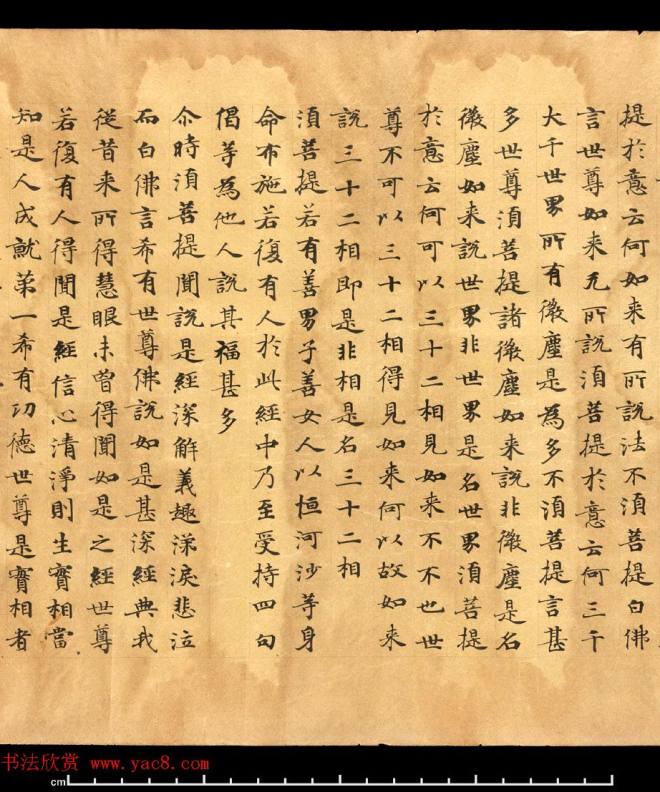 提於意云何如来有所說法不湏菩提白佛
言世尊如来无所說湏菩提於意云何三千
大千世界所有微塵是為多不湏菩提言甚
多世尊湏菩提諸微塵如来說非微塵是名
微塵如来說世界非世界是名世界湏菩提
於意云何可以三十二相見如来不不也世
尊不可以三十二相得見如来何以故如来
說三十二相即是非相是名三十二相
湏菩提若有善男子善女人以恒河沙等身
命布施若復有人於此經中乃至受持四句
偈等為他人說其福甚多
尒時湏菩提聞說是經深解義趣涕淚悲泣
而白佛言希有世尊佛說如是甚深經典我
從昔来所得慧眼未曾得聞如是之經世尊
若復有人得聞是經信心清淨則生實相當
知是人成就苐一希有功德世尊是實相者
书法欣赏 www.yac8.com
cm